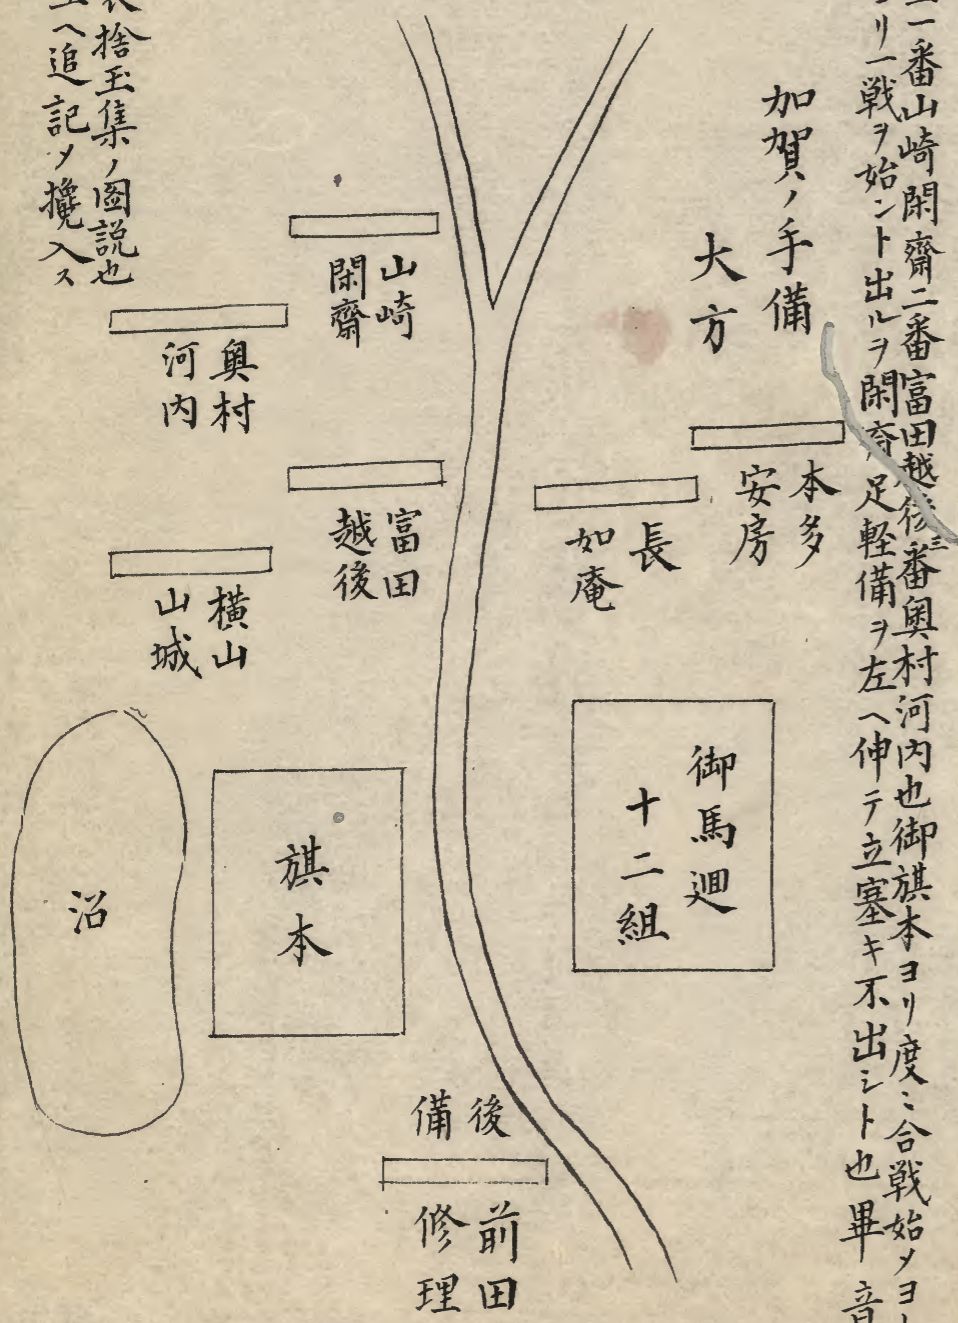 一番山崎閑齋二番富田越後三番奥村河内也御旗本ヨリ度々合戦始メヨト
リ一戦ヲ始ント出ルヲ閑斎足軽備ヲ左ヘ伸テ立塞キ不出シト也畢音
加賀ノ手備
大方
本多
安房
長
如庵
御馬廻
十二組
山崎
閑齋
奥村
河内
富田
越後
横山
山城
旗本
沼
後
備
前田
修理
捨玉集ノ圖説也
ヘ追記メ攙入ス